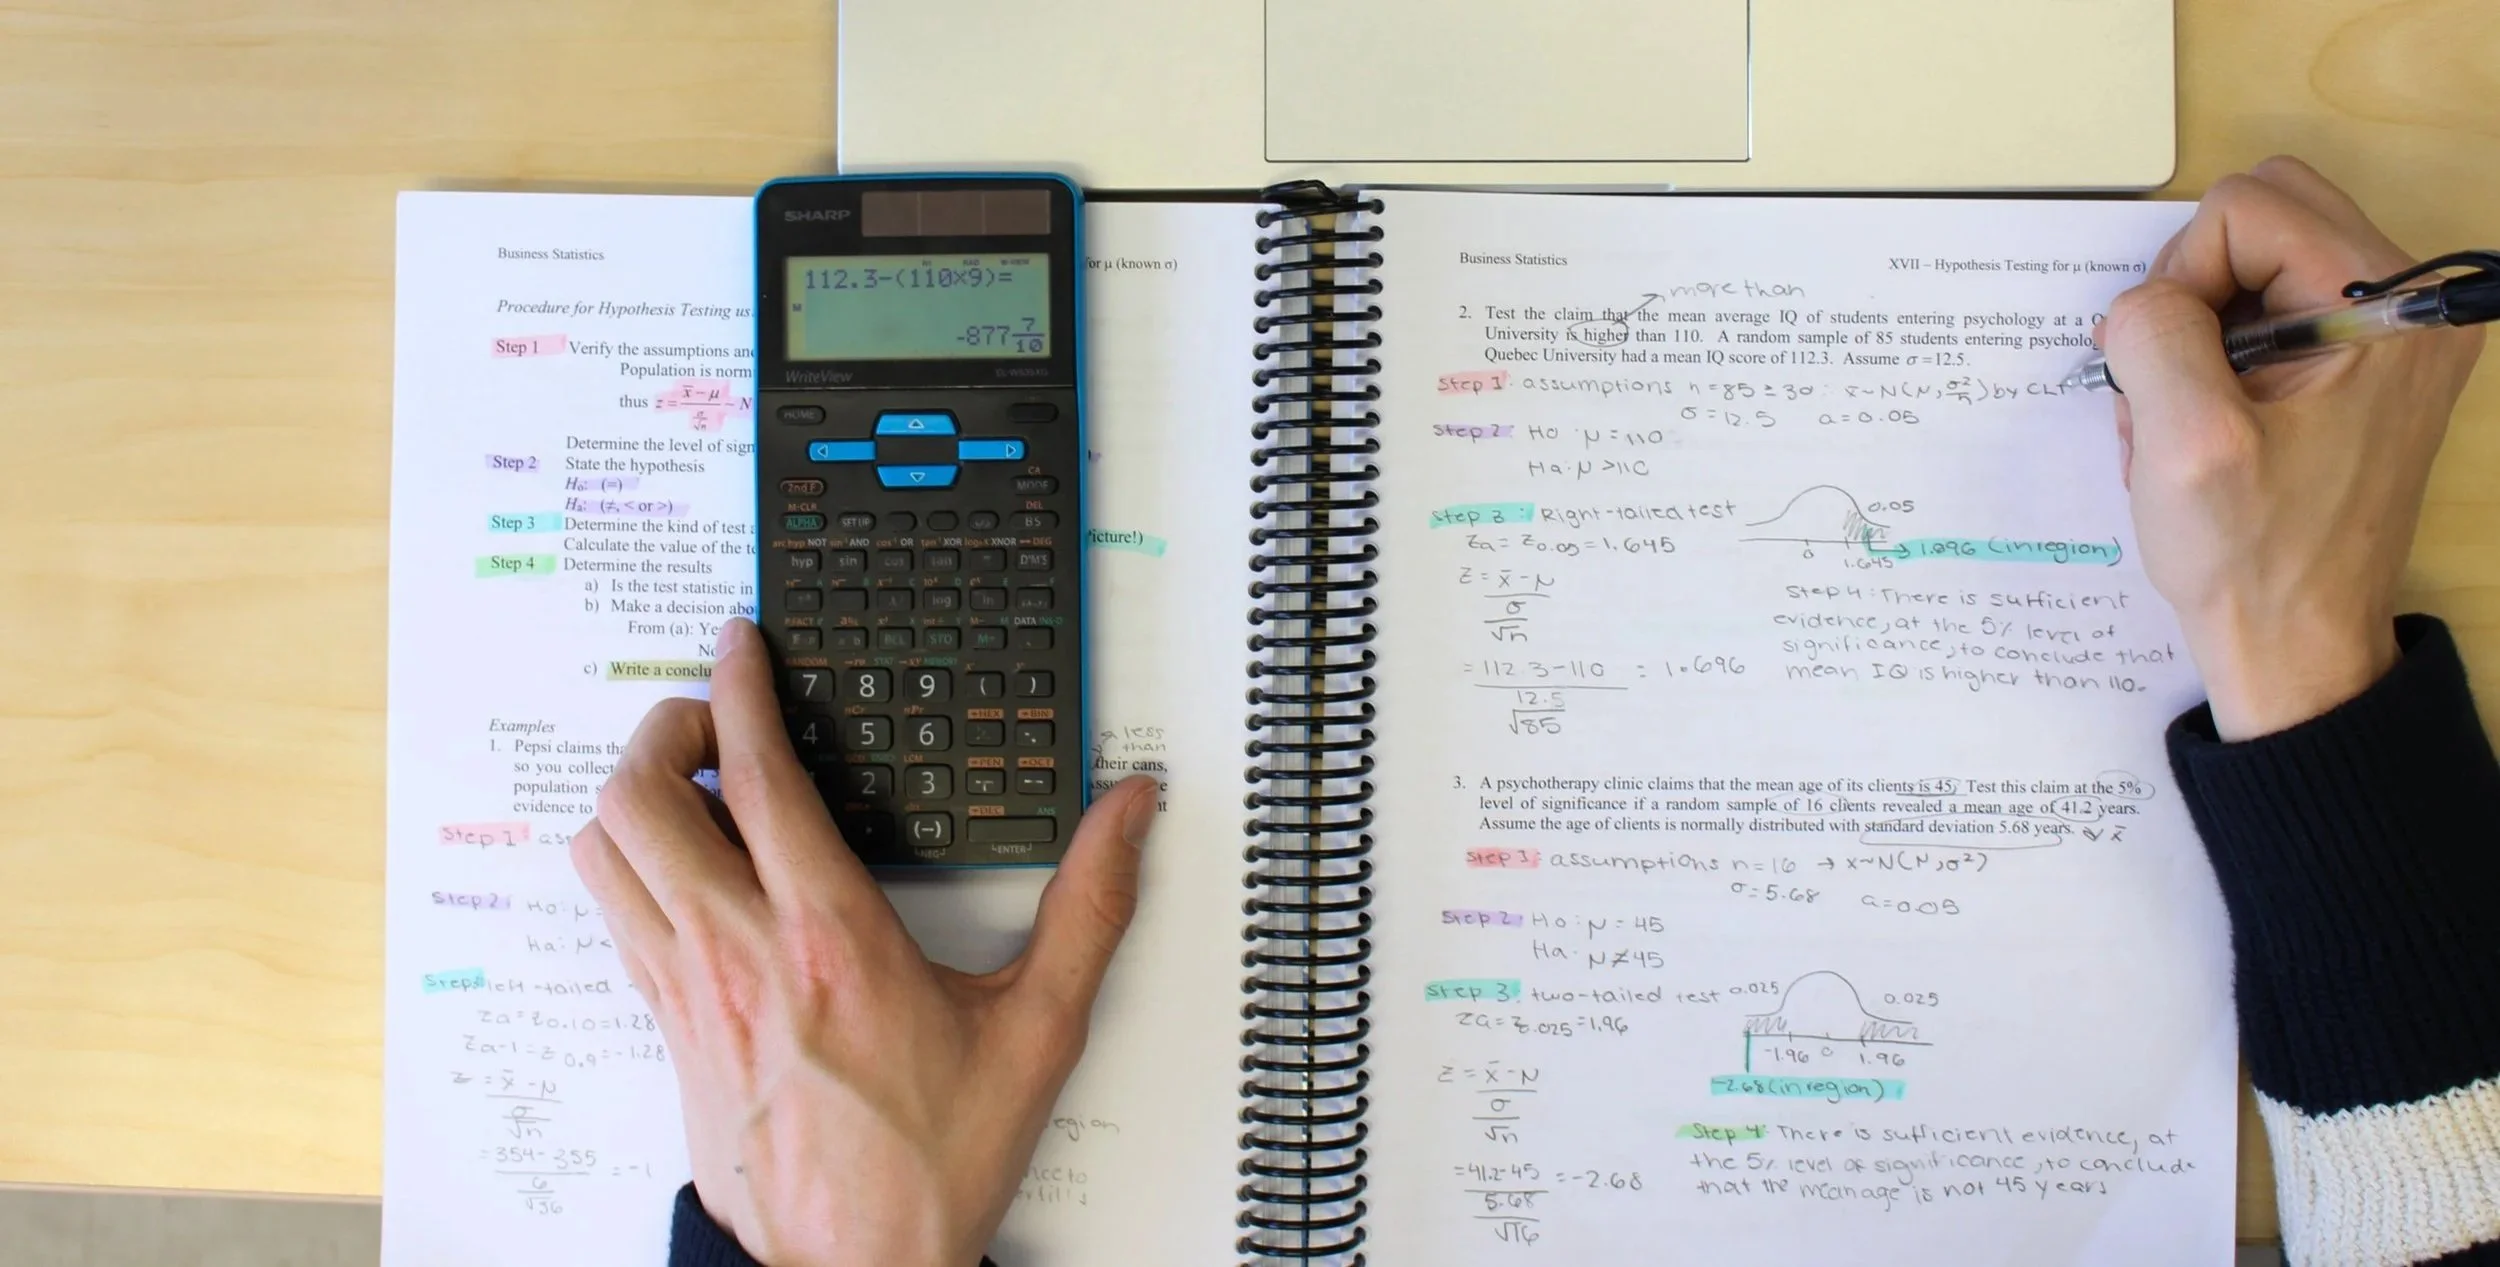 Business Statistics
for μ (known σ)
Procedure for Hypothesis Testing us
Step 1 Verify the assumptions an
Population is norm
thus z = x̄ – μ ~ N
σ
√n
Determine the level of sign
Step 2 State the hypothesis
H₀: (=)
Hₐ: (≠, < or >)
Step 3 Determine the kind of test
Calculate the value of the te
icture!)
Step 4 Determine the results
a) Is the test statistic in
b) Make a decision abo
From (a): Ye
No
c) Write a conclu
Examples
1. Pepsi claims tha
less
than
so you collect
their cans,
population s
evidence to
Step 1: ass
Step 2: Ho: μ =
Ha: μ <
Step 3 left-tailed
Za = Z0.10 = 1.28
Za-1 = Z0.9 = -1.28
z = x̄ - μ
σ
√n
= 354 - 355 = -1
6
√36
egion
SHARP
112.3-(110×9)=
-877 7/10
WriteView
HOME
2ndF
CA
MODE
M-CLR
DEL
ALPHA
SETUP
BS
arc hyp NOT sin⁻¹ AND cos⁻¹ OR tan⁻¹ XOR XNOR ↔DEG
hyp sin cos tan D°M'S
log ln
DATA INS-D
RCL STO M+
RANDOM STAT MEMORY
7 8 9 ( )
nCr nPr →HEX →BIN
4 5 6
LCM →PEN →OCT
2 3
→DEC ANS
(−)
NEG ENTER
Business Statistics
XVII – Hypothesis Testing for μ (known σ)
more than
2. Test the claim that the mean average IQ of students entering psychology at a
University is higher than 110. A random sample of 85 students entering psycholo
Quebec University had a mean IQ score of 112.3. Assume σ = 12.5.
Step 1: assumptions n = 85 ≥ 30 ∴ x̄ ~ N(μ, σ²/n) by CLT
σ = 12.5 a = 0.05
Step 2: Ho: μ = 110
Ha: μ > 110
Step 3: Right-tailed test
0.05
Za = Z0.05 = 1.645
0
1.645
1.696 (in region)
z = x̄ - μ
σ
√n
= 112.3 - 110 = 1.696
12.5
√85
Step 4: There is sufficient
evidence, at the 5% level of
significance, to conclude that
mean IQ is higher than 110.
3. A psychotherapy clinic claims that the mean age of its clients is 45. Test this claim at the 5%
level of significance if a random sample of 16 clients revealed a mean age of 41.2 years.
Assume the age of clients is normally distributed with standard deviation 5.68 years.
x̄
Step 1: assumptions n = 16 → x ~ N(μ, σ²)
σ = 5.68 a = 0.05
Step 2: Ho: μ = 45
Ha: μ ≠ 45
Step 3: two-tailed test 0.025 0.025
Za = Z0.025 = 1.96
-1.96 0 1.96
-2.68 (in region)
z = x̄ - μ
σ
√n
= 41.2 - 45 = -2.68
5.68
√16
Step 4: There is sufficient evidence, at
the 5% level of significance, to conclude
that the mean age is not 45 years